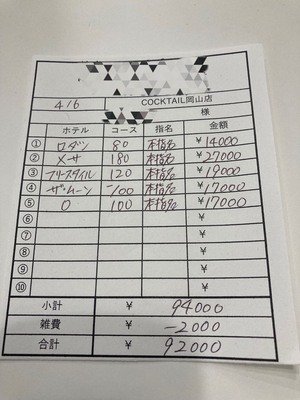 4/6 COCKTAIL岡山店
様
ホテル コース 指名 金額
① ロダン 80 本指名 ¥14000
② メーサ 180 本指名 ¥27000
③ フリースタイル 120 本指名 ¥19000
④ ザムーン 100 本指名 ¥17000
⑤ O 100 本指名 ¥17000
⑥ ¥
⑦ ¥
⑧ ¥
⑨ ¥
⑩ ¥
小計 ¥ 94000
雑費 ¥ -2000
合計 ¥ 92000